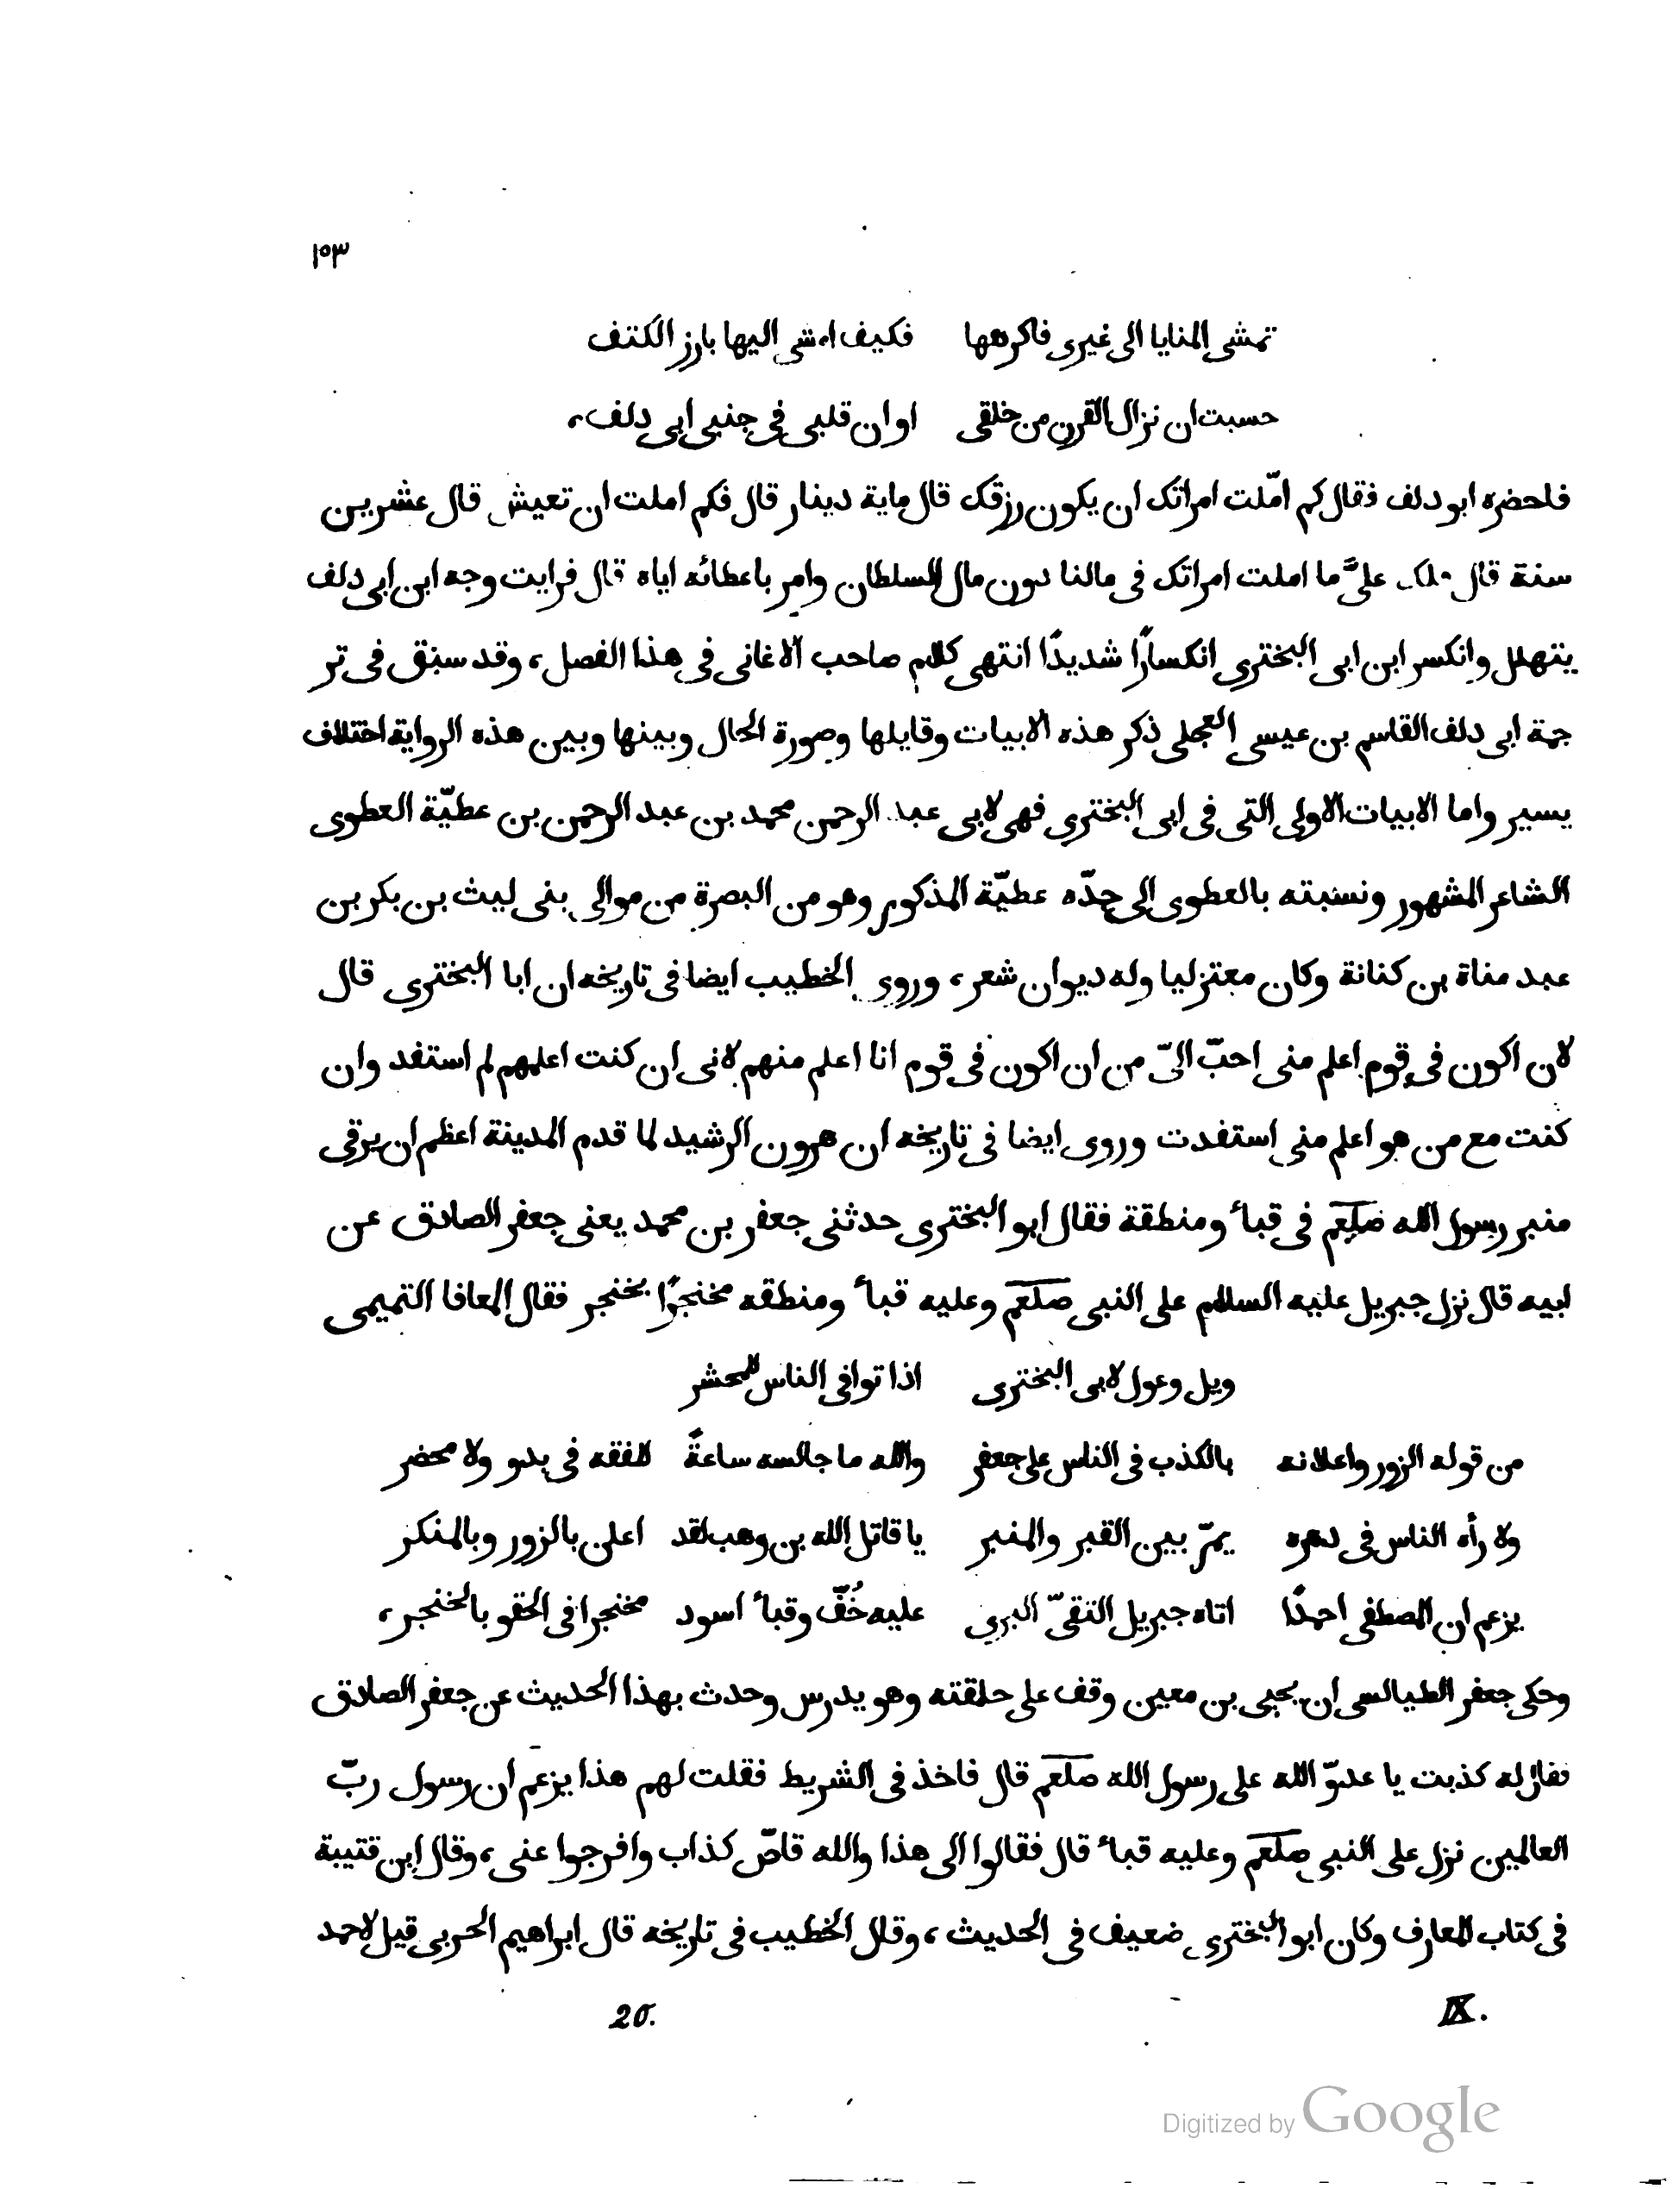 ١٥٣
تمشى المنايا الى غيرى فاكرهها فكيف امشى اليها بارز الكتف
حسبت ان نزال القرن من خلقى او ان قلبى فى جنبى ابى دلف،
فاحضره ابو دلف فقال كم امّلت امراتك ان يكون رزقك قال ماية دينار قال فكم املت ان تعيش قال عشرين
سنة قال فلك علىَّ ما املت امراتك فى مالنا دون مال السلطان وامر باعطائه اياه قال فرايت وجه ابن ابى دلف
يتهلل وانكسر ابن ابى البخترى انكسارًا شديدًا انتهى كلام صاحب الاغانى فى هذا الفصل، وقد سبق فى تر
جمة ابى دلف القاسم بن عيسى العجلى ذكر هذه الابيات وقايلها وصورة الحال وبينها وبين هذه الرواية اختلاف
يسير واما الابيات الاولى التى فى ابى البخترى فهى لابى عبد الرحمن محمد بن عبد الرحمن بن عطيّة العطوى
الشاعر المشهور ونسبته بالعطوى الى جدّه عطيّة المذكور وهو من البصرة من موالى بنى ليث بن بكر بن
عبد مناة بن كنانة وكان معتزليا وله ديوان شعر، وروى الخطيب ايضا فى تاريخه ان ابا البخترى قال
لان اكون فى قوم اعلم منى احبّ الىّ من ان اكون فى قوم انا اعلم منهم لانى ان كنت اعلمهم لم استفد وان
كنت مع من هو اعلم منى استفدت وروى ايضا فى تاريخه ان هرون الرشيد لما قدم المدينة اعظم ان يرقى
منبر رسول الله صلعم فى قباء ومنطقة فقال ابو البخترى حدثنى جعفر بن محمد يعنى جعفر الصادق عن
ابيه قال نزل جبريل عليه السلام على النبى صلعم وعليه قباء ومنطقه مخنجرًا بخنجر فقال المعافا التميمى
ويل وعول لابى البخترى اذا توافى الناس للمحشر
من قوله الزور واعلانه بالكذب فى الناس على جعفر والله ما جالسه ساعةً للفقه فى بدو ولا محضر
ولا رأه الناس فى دهره يمرّ بين القبر والمنبر يا قاتل الله بن وهب لقد اعلن بالزور وبالمنكر
يزعم ان المصطفى احمدًا اتاه جبريل التقىّ البرى عليه خُفّ وقباء اسود مخنجرا فى الحقو بالخنجر،
وحكى جعفر الطيالسى ان يحيى بن معين وقف على حلقته وهو يدرس وحدث بهذا الحديث عن جعفر الصادق
فقال له كذبت يا عدوّ الله على رسول الله صلعم قال فاخذ فى الشريط فقلت لهم هذا يزعم ان رسول ربّ
العالمين نزل على النبى صلعم وعليه قباء قال فقالوا الى هذا والله قاصّ كذاب وافرجوا عنى، وقال ابن قتيبة
فى كتاب المعارف وكان ابو البخترى ضعيف فى الحديث، وقال الخطيب فى تاريخه قال ابراهيم الحربى قيل لاحمد
IX. 20.
Digitized by Google